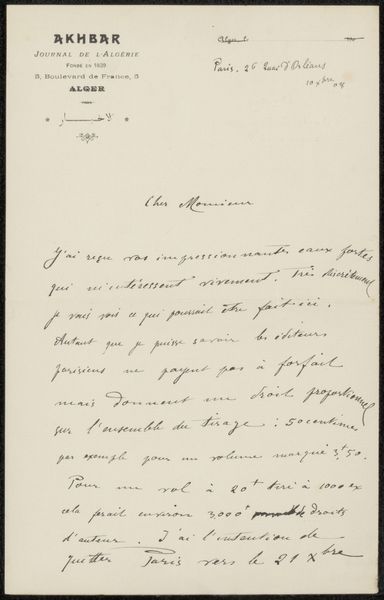 AKHBAR
JOURNAL DE L'ALGÉRIE
FONDÉ EN 1839
5, Boulevard de France, 5
ALGER
الاخبار
Paris, 26 Quai d'Orléans
10 Xbre 04
Cher Monsieur
J'ai reçu vos impressionnantes eaux fortes
qui m'intéressent vivement. Très discrètement
je vais voir ce qui pourrait être fait ici.
Autant que je puisse savoir les éditeurs
parisiens ne payent pas à forfait
mais donnent un droit proportionnel
sur l'ensemble du tirage : 50 centimes
par exemple pour un volume marqué 3f,50.
Pour un vol à 20f tiré à 1000 ex
cela ferait environ 3,000f droits
d'auteur. J'ai l'intention de
quitter Paris vers le 21 Xbre